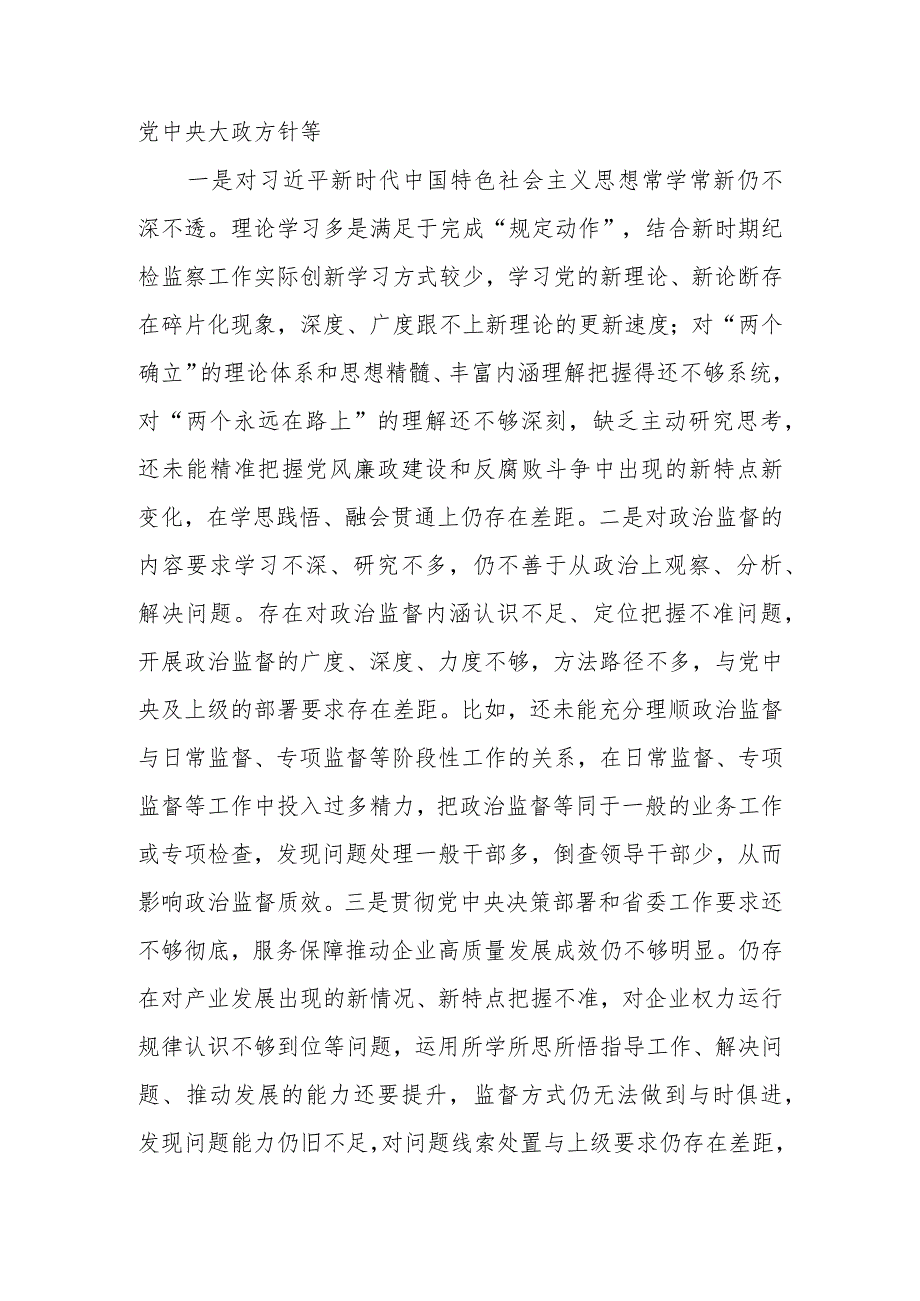 党中央大政方针等
一是对习近平新时代中国特色社会主义思想常学常新仍不
深不透。理论学习多是满足于完成“规定动作”，结合新时期纪
检监察工作实际创新学习方式较少，学习党的新理论、新论断存
在碎片化现象，深度、广度跟不上新理论的更新速度；对“两个
确立”的理论体系和思想精髓、丰富内涵理解把握得还不够系统，
对“两个永远在路上”的理解还不够深刻，缺乏主动研究思考，
还未能精准把握党风廉政建设和反腐败斗争中出现的新特点新
变化，在学思践悟、融会贯通上仍存在差距。二是对政治监督的
内容要求学习不深、研究不多，仍不善于从政治上观察、分析、
解决问题。存在对政治监督内涵认识不足、定位把握不准问题，
开展政治监督的广度、深度、力度不够，方法路径不多，与党中
央及上级的部署要求存在差距。比如，还未能充分理顺政治监督
与日常监督、专项监督等阶段性工作的关系，在日常监督、专项
监督等工作中投入过多精力，把政治监督等同于一般的业务工作
或专项检查，发现问题处理一般干部多，倒查领导干部少，从而
影响政治监督质效。三是贯彻党中央决策部署和省委工作要求还
不够彻底，服务保障推动企业高质量发展成效仍不够明显。仍存
在对产业发展出现的新情况、新特点把握不准，对企业权力运行
规律认识不够到位等问题，运用所学所思所悟指导工作、解决问
题、推动发展的能力还要提升，监督方式仍无法做到与时俱进，
发现问题能力仍旧不足，对问题线索处置与上级要求仍存在差距，